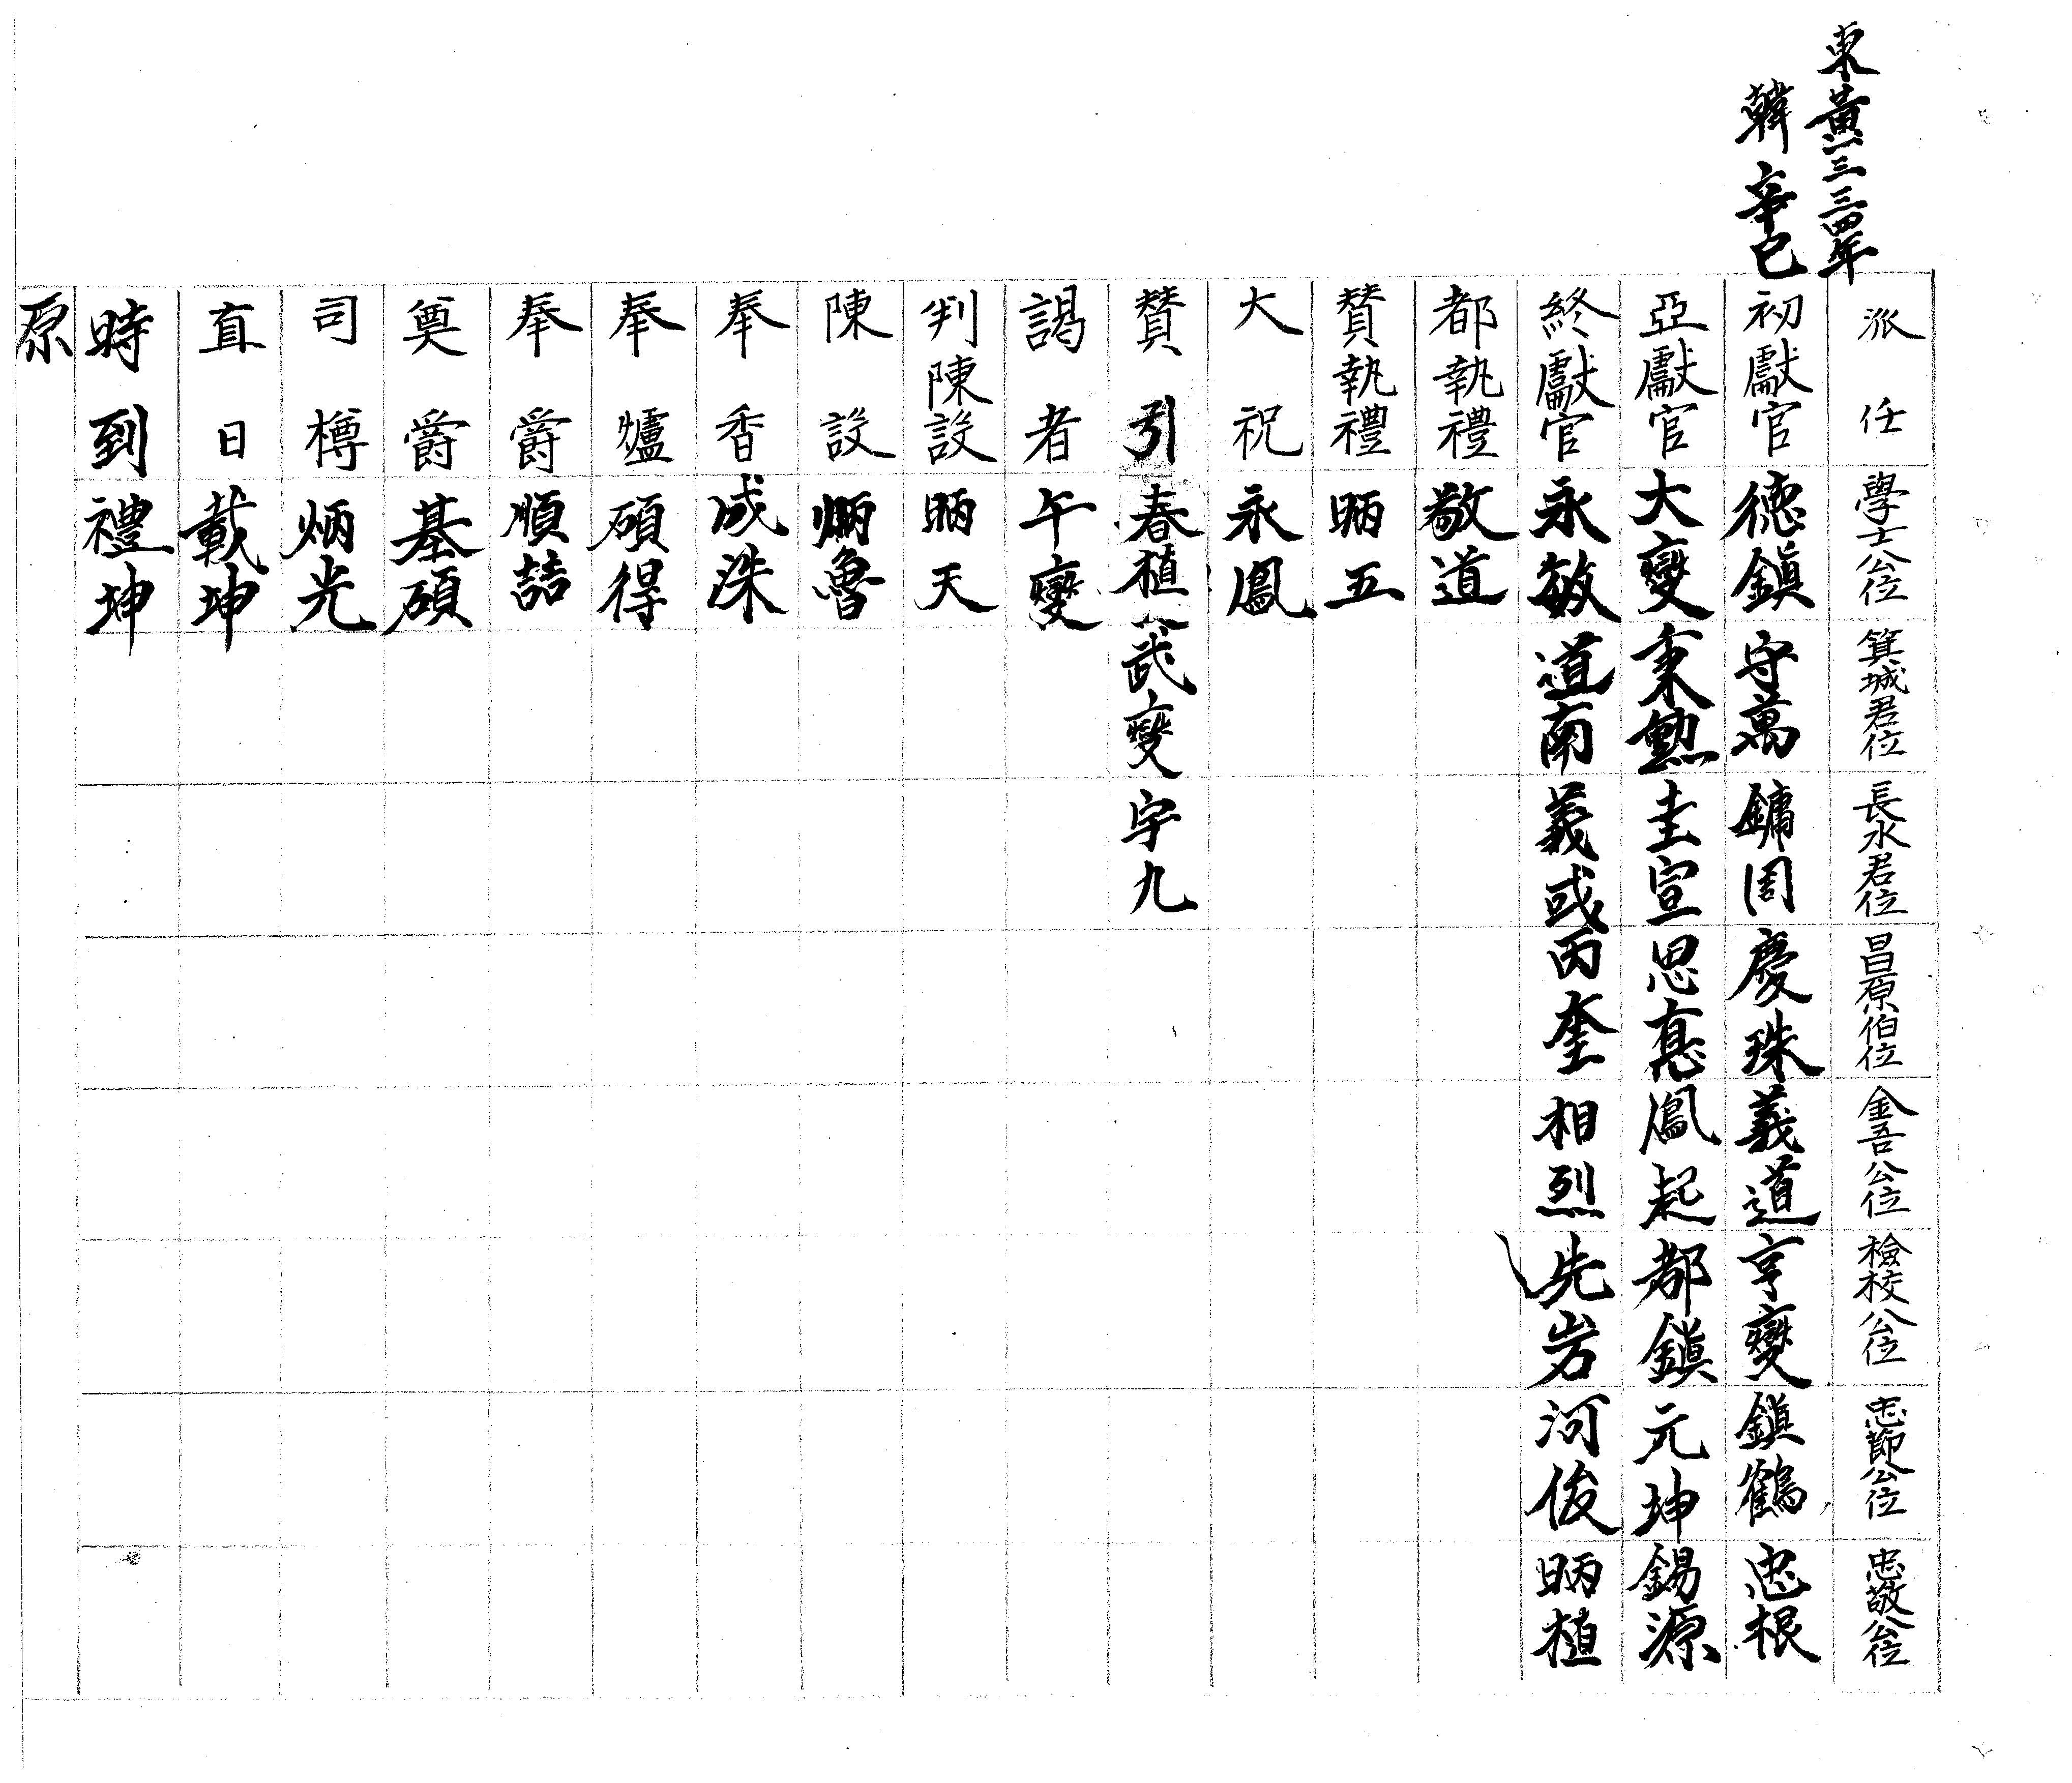 東黃一三三四年
韓 辛巳
派任 學士公位 箕城君位 長水君位 昌原伯位 金吾公位 檢校公位 忠節公位 忠敬公位
初獻官 德鎭 守萬 鏞周 慶珠 義道 亨燮 鎭鶴 忠根
亞獻官 大燮 秉勲 圭宣 思惪 鳳起 都鎭 元坤 錫源
終獻官 永敏 道南 義或 丙奎 相烈 先岩 河俊 昞植
都執禮 敬道
賛執禮 昞五
大祝 永鳳
賛引 春植 武燮 宇九
謁者 午燮
判陳設 昞天
陳設 炳魯
奉香 成洙
奉爐 碩得
奉爵 順喆
奠爵 基碩
司樽 炳光
直日 載坤
時到 禮坤
原